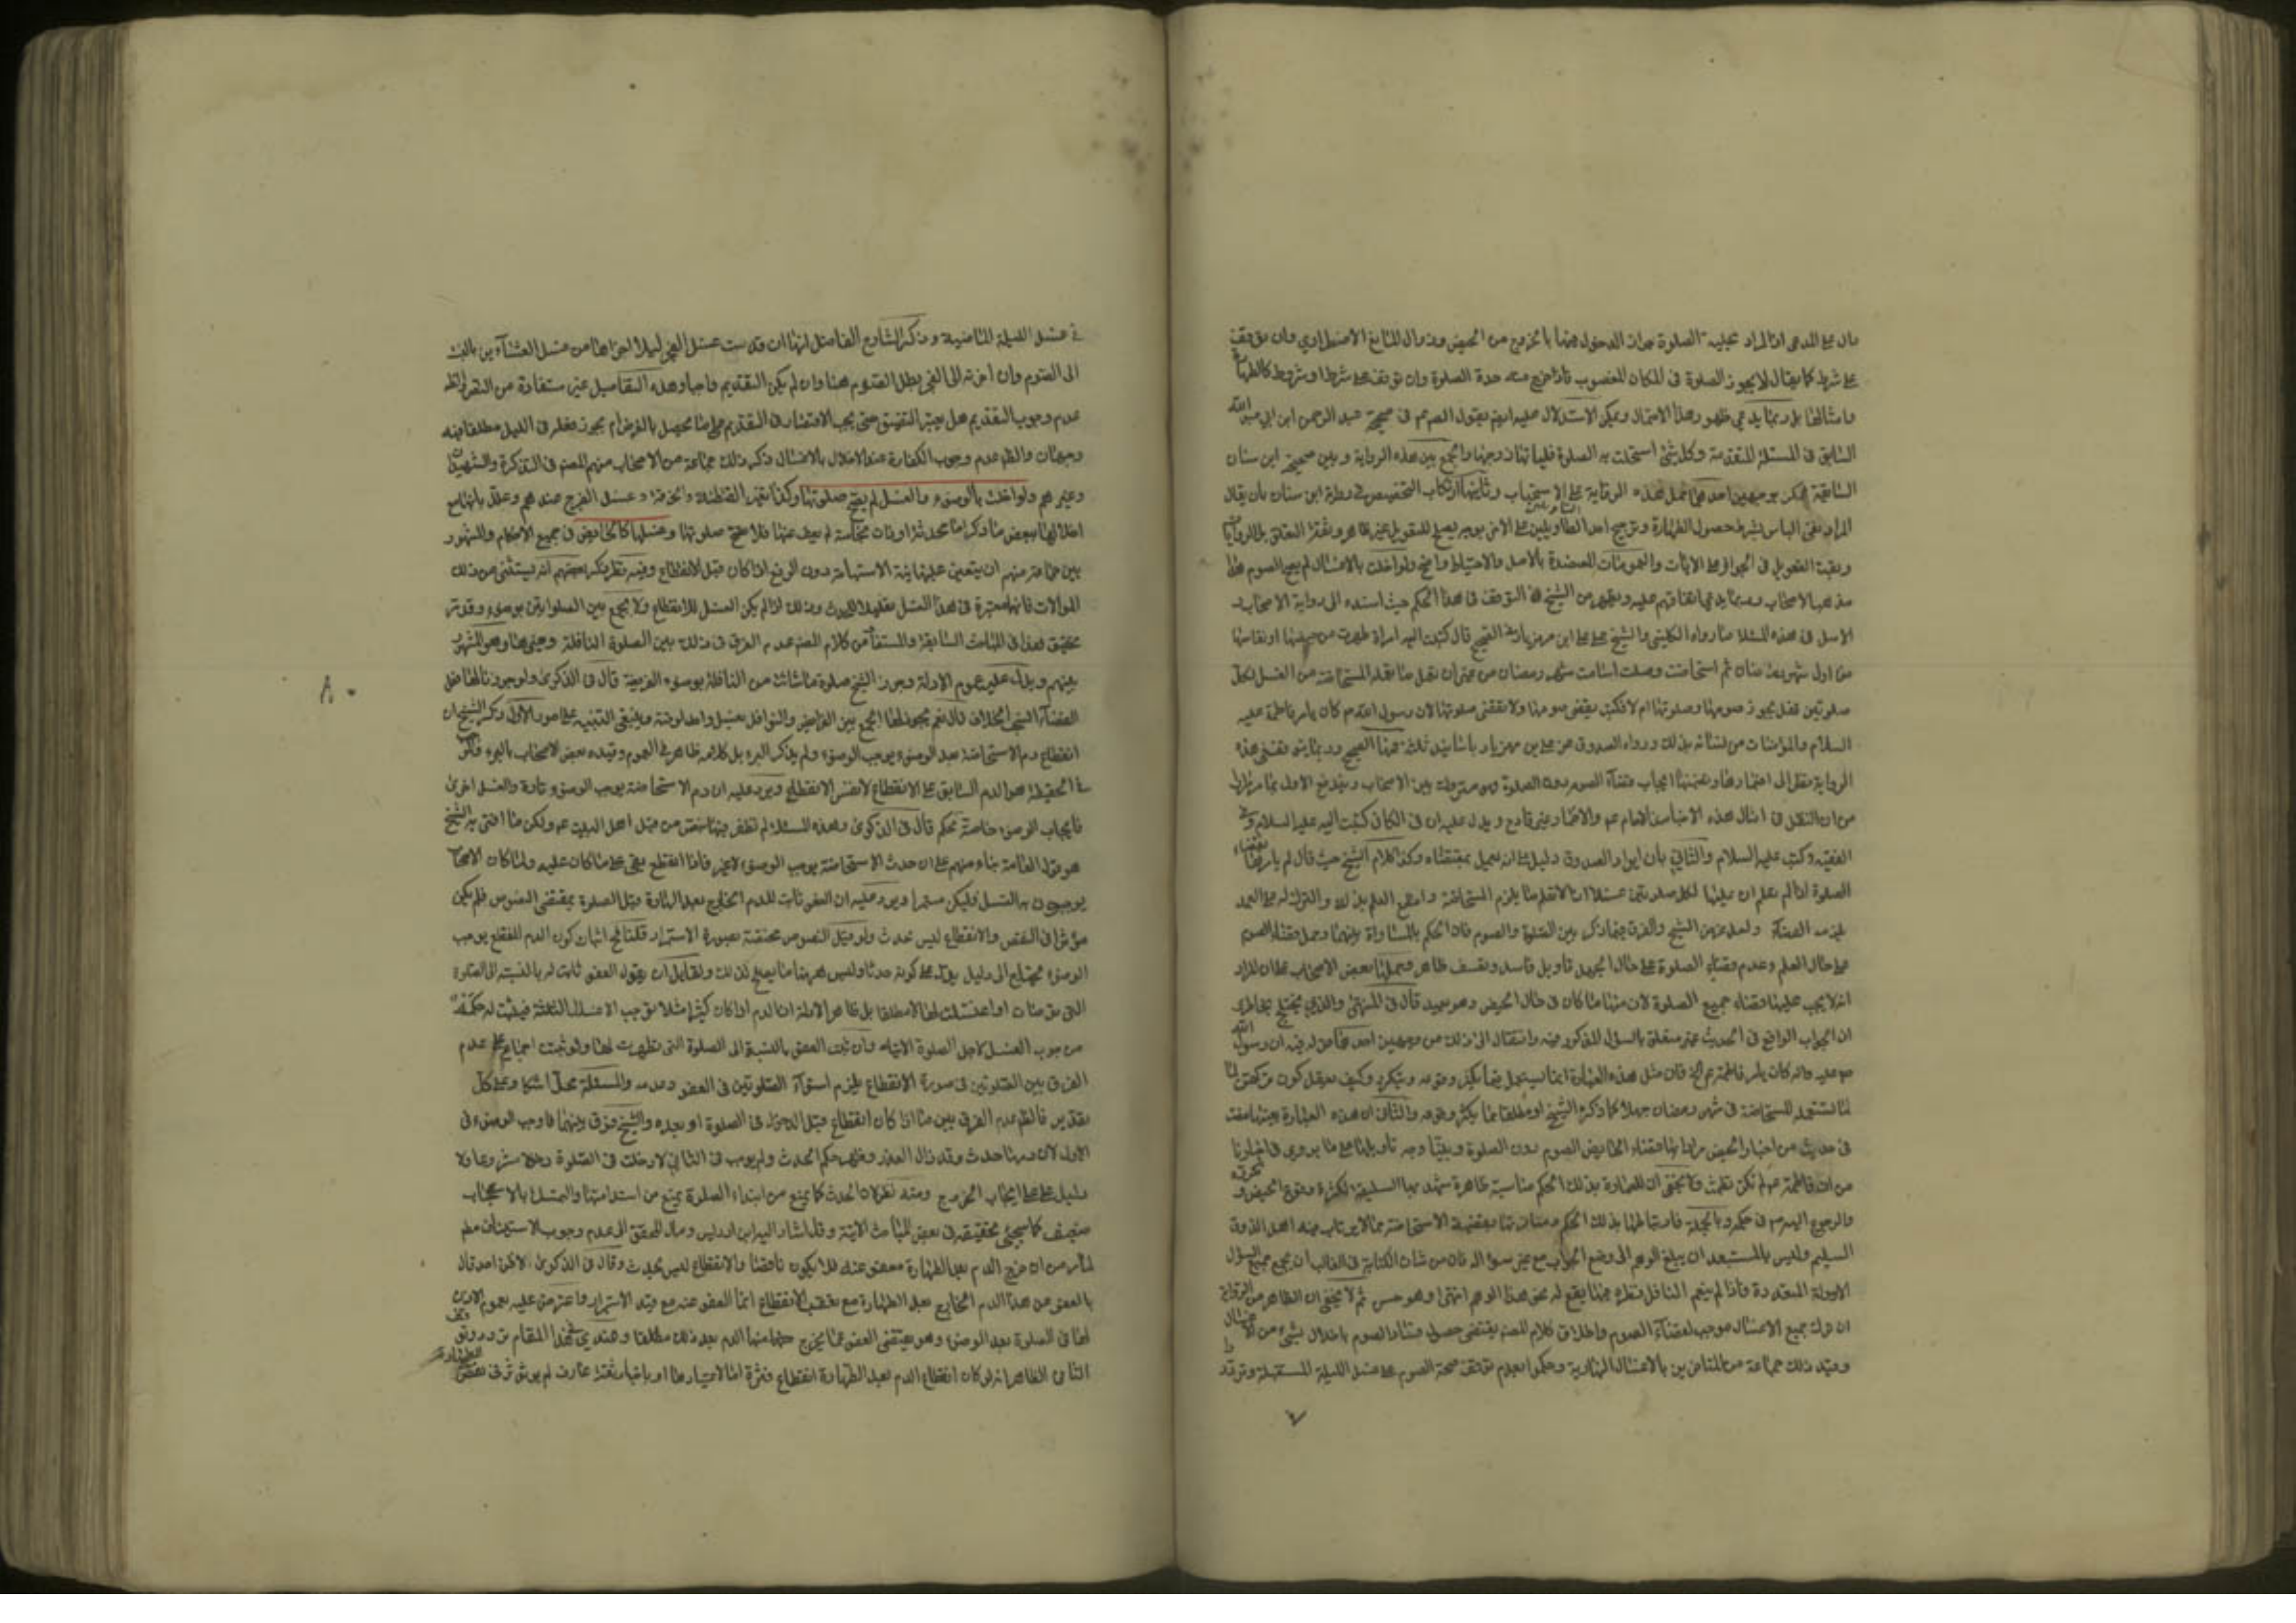 دال على المدعى اذ المراد بحلية الصلوة جواز الدخول فيها بالخروج من الحيض وزوال المانع الاضطراري وان توقف
على شرط كما يقال لا يجوز الصلوة في المكان المغصوب فاذا خرج منه حلت الصلوة وان توقف على شرط او شروط كالطهارة
وامثالها بل ربما يدعى ظهور هذا الاحتمال ويمكن الاستدلال عليه ايضا بقول الصم في صحيحة عبد الرحمن ابن ابي عبد الله
السابق في المسئلة المتقدمة وكل شئ استحلت به الصلوة فلياتها زوجها والجمع بين هذه الرواية وبين صحيحة ابن سنان
السابقة يمكن بوجهين احدهما حمل هذه الرواية على الاستحباب وثانيهما ارتكاب التخصيص في رواية ابن سنان بان يقال
المراد نفى الباس بشرط حصول الطهارة وترجيح احد التاويلين على الاخر بوجه يصلح للتعويل غير ظاهر
وبقيت التعويل في الجواز على الايات والعمومات المعتضدة بالاصل والاحتياط واضح ولو اخلت بالاغسال لم يصح الصوم هذا
مذهب الاصحاب وربما يدعى اتفاقهم عليه ويظهر من الشيخ التوقف في هذا الحكم حيث اسنده الى رواية الاصحاب و
الاصل في هذه المسئلة ما رواه الكليني والشيخ عن علي ابن مهزيار في الصحيح قال كتبت اليه امراة طهرت من حيضها او نفاسها
من اول شهر رمضان ثم استحاضت وصلت وصامت شهر رمضان من غير ان تعمل ما تعمله المستحاضة من الغسل لكل
صلوتين فهل يجوز صومها وصلوتها ام لا فكتب يقضى صومها ولا تقضى صلوتها لان رسول الله ص كان يامر فاطمة عليه
السلام والمؤمنات من نسائه بذلك ورواه الصدوق عن علي بن مهزيار
الرواية نظرا الى اضمارها وتضمنها ايجاب قضاء الصوم دون الصلوة وهو متروك بين الاصحاب ويندفع الاول بما مر مرارا
من ان النقل في امثال هذه الاخبار عن الامام عم والاضمار غير قادح ويدل عليه ان في الكافي كتبت اليه عليه السلام وفي
الفقيه وكتب عليه السلام والثاني بان ايراد الصدوق دليل على انه يعمل بمقتضاه وكذا كلام الشيخ حيث قال لم يامرها بقضاء
الصلوة اذا لم تعلم ان عليها لكل صلوتين غسلا او لا تعلم ما يلزم المستحاضة واما مع العلم بذلك والترك له على العمد
يلزمه القضاء ولعل غرض الشيخ والفرق فيما ذكر بين الصلوة والصوم فان الحكم بالمساواة بينهما وحمل قضاء الصوم
على حال العلم وعدم قضاء الصلوة على حال الجهل تاويل فاسد وتعسف ظاهر وحملها بعض الاصحاب على ان المراد
انه لا يجب عليها قضاء جميع الصلوة لان منها ما كان في حال الحيض وهو بعيد قال في المنتقى والذي يختلج بخاطري
ان الجواب الواقع في الحديث غير متعلق بالسؤال المذكور فيه وانتقال الى ذلك من وجهين احدهما قوله فيه ان رسول الله
ص عليه واله كان يامر فاطمة عم الخ فان مثل هذه العبارة انما تستعمل فيما يكثر وقوعه ويتكرر وكيف يعقل كون تركهن لما
لما تستعمله المستحاضة في شهر رمضان جهلا كما ذكره الشيخ او مطلقا مما يكثر وقوعه والثاني ان هذه العبارة بعينها مضت
في حديث من اخبار الحيض مرادا بها قضاء الحائض الصوم دون الصلوة وبينا وجه تاويلها على ما يروى في اخبارنا
من ان فاطمة عم لم تكن تطمث ولا يخفى ان للعبارة بذلك الحكم مناسبة ظاهرة تشهد بها السليقة لكثرة وقوع الحيض وتكرره
والرجوع اليه ص في حكمه وبالجملة فارتباطها بذلك الحكم ومنافرتها لقضية الاستحاضة مما لا يرتاب فيه اهل الذوق
السليم وليس بالمستبعد ان يبلغ الوهم الى وضع الجواب مع غير سؤاله فان من شان الكتابة في الغالب ان يجمع جميع السؤال
الاسولة المتعددة فاذا لم ينعم الناقل نظره فيها يقع له نحو هذا الوهم انتهى وهو حسن ثم لا يخفى ان الظاهر من الرواية
ان ترك جميع الاغسال موجب لقضاء الصوم واطلاق كلام المصم يقتضى حصول فساد الصوم باخلال شئ من الاغسال
وقيد ذلك جماعة من المتاخرين بالاغسال النهارية وحكموا بعدم توقف صحة الصوم على غسل الليلة المستقبلة وتردد
في غسل الليلة الماضية وذكر الشارح الفاضل انها ان قدمت غسل الفجر ليلا اجزاها من غسل العشائين بالنسبة
الى الصوم وان اخرته الى الفجر بطل الصوم هنا وان لم يكن التقديم واجبا وهذه التفاصيل غير مستفادة من النص
عدم وجوب التقديم هل يعتبر التضييق حتى يجب الاقتصار في التقديم على ما يحصل بالغرض ام يجوز فعله في الليل مطلقا فيه
وجهان والظ عدم وجوب الكفارة عند الاخلال بالاغسال ذكر ذلك جماعة من الاصحاب منهم المصم في التذكرة والشهيدان
وغيرهم ولو اخلت بالوضوء والغسل لم يصح صلوتها وكذا تغيير القطنة والخرقة وغسل الفرج عندهم وعلل بانها مع
اخلالها ببعض ما ذكر اما محدثة او ذات نجاسة لم يعف عنها فلا تصح صلوتها وغسلها كالحائض في جميع الاحكام والمشهور
بين جماعة منهم ان يتعين عليها نية الاستباحة دون الرفع اذا كان قبل الانقطاع وفيه نظر وذكر بعضهم انه يستثنى من ذلك
الموالات فانها معتبرة في هذا الغسل تقليلا للحدث وذلك اذا لم يكن الغسل للانقطاع ولا يجمع بين الصلوتين بوضوء وقد مر
تحقيق هذا في المباحث السابقة والمستفاد من كلام المصم عدم الفرق في ذلك بين الصلوة النافلة وغيرها وهو المشهور
بينهم ويدل عليه عموم الادلة وجوز الشيخ صلوة ما شاءت من النافلة بوضوء الفريضة قال في الذكرى
القضاء الشيخ الخلاف قال نعم يجوز لها الجمع بين الفرائض والنوافل بغسل واحد ووضوء وينبغي التنبيه على امور الاول ذكر الشيخ ان
انقطاع دم الاستحاضة بعد الوضوء يوجب الوضوء ولم يذكر البرء بل كلامه ظاهر في العموم وقيده بعض الاصحاب بالبرء
في الحقيقة هو الدم السابق على الانقطاع لا نفس الانقطاع ويرد عليه ان دم الاستحاضة يوجب الوضوء تارة والغسل اخرى
فايجاب الوضوء خاصة تحكم قال في الذكرى وهذه المسئلة لم نظفر فيها بنص من قبل اهل البيت عم ولكن ما افتى به الشيخ
هو قول العامة بناء منهم على ان حدث الاستحاضة يوجب الوضوء لا غير فاذا انقطع بقى على ما كان عليه ولما كان الاصحاب
يوجبون به الغسل فليكن مستمرا ويرد عليه ان العفو ثابت للدم الخارج بعد الطهارة قبل الصلوة بمقتضى النصوص فلم يكن
مؤثرا في النقض والانقطاع ليس بحدث ولو قيل النصوص مختصة بصورة الاستمرار قلنا فح اثبات كون الدم المنقطع يوجب
الوضوء يحتاج الى دليل يدل على كونه حدثا وليس ههنا ما يصلح لذلك ولقائل ان يقول العفو ثابت له بالنسبة الى الصلوة
التي توضات او اغتسلت لها لا مطلقا بل ظاهر الادلة ان الدم اذا كان كثيرا مثلا توجب الاغسال الثلثة فيثبت له حكمه
من وجوب الغسل لاجل الصلوة الاتية وان ثبت العفو بالنسبة الى الصلوة التي تطهرت لها ولو ثبت اجماع على عدم
الفرق بين الصلوتين في صورة الانقطاع يلزم استواء الصلوتين في العفو وعدمه والمسئلة محل اشكال وعلى كل
تقدير فالظ عدم الفرق بين ما اذا كان انقطاع قبل الدخول في الصلوة او بعده والشيخ فرق بينهما فاوجب الوضوء في
الاول لان دمها حدث وقد زال العذر وظهر حكم الحدث ولم يوجب في الثاني لا دخلت في الصلوة دخولا مشروعا ولا
دليل على ايجاب الخروج وفيه نظر لان الحدث كما يمنع من ابتداء الصلوة يمنع من استدامتها والتمسك بالاستصحاب
ضعيف كما سيجئ تحقيقه في بعض المباحث الاتية وقد اشار اليه ابن ادريس ومال المحقق الى عدم وجوب الاستيناف مطم
لما مر من ان خروج الدم بعد الطهارة معفو عنه فلا يكون ناقضا والانقطاع ليس بحدث وقال في الذكرى لا اظن احدا قال
بالعفو عن هذا الدم الخارج بعد الطهارة مع تعقب الانقطاع انما العفو عنه مع قيد الاستمرار واعترض عليه بعموم الاذن
لها في الصلوة بعد الوضوء وهو يقتضى العفو عما يخرج منها من الدم بعد ذلك مطلقا وعندي في هذا المقام توقف
الثاني الظاهر انه لو كان انقطاع الدم بعد الطهارة انقطاع فترة اما لاعتيادها او باخبار ثقة عارف لم يؤثر في نقض الطهارة
٨٠